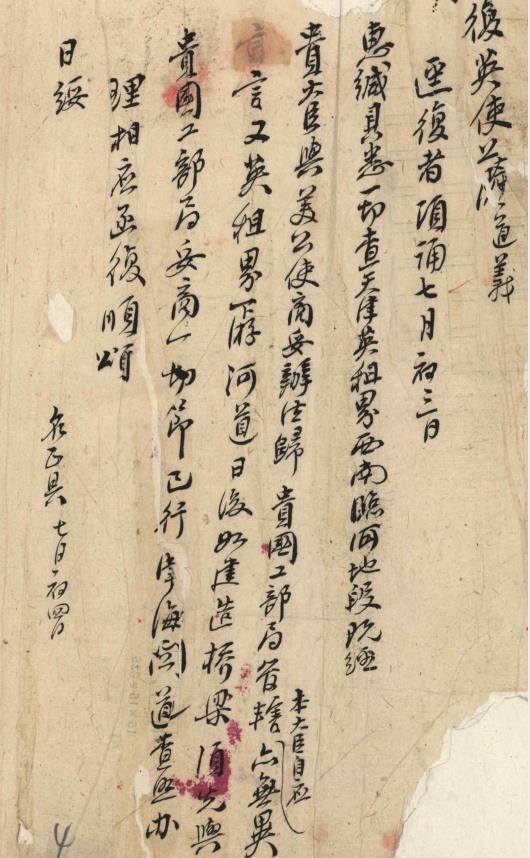 復英使薩道義
逕復者頃誦七月初三日
惠緘具悉一切查天津英租界西南臨河地段既經
貴大臣與美公使商妥辦法歸貴國工部局管轄本大臣自應亦無異
言又英租界下游河道日後如建造橋梁須先與
貴國工部局妥商一切節已行津海關道查照办
理相应函復順頌
日綏
名正具七月初四日
4